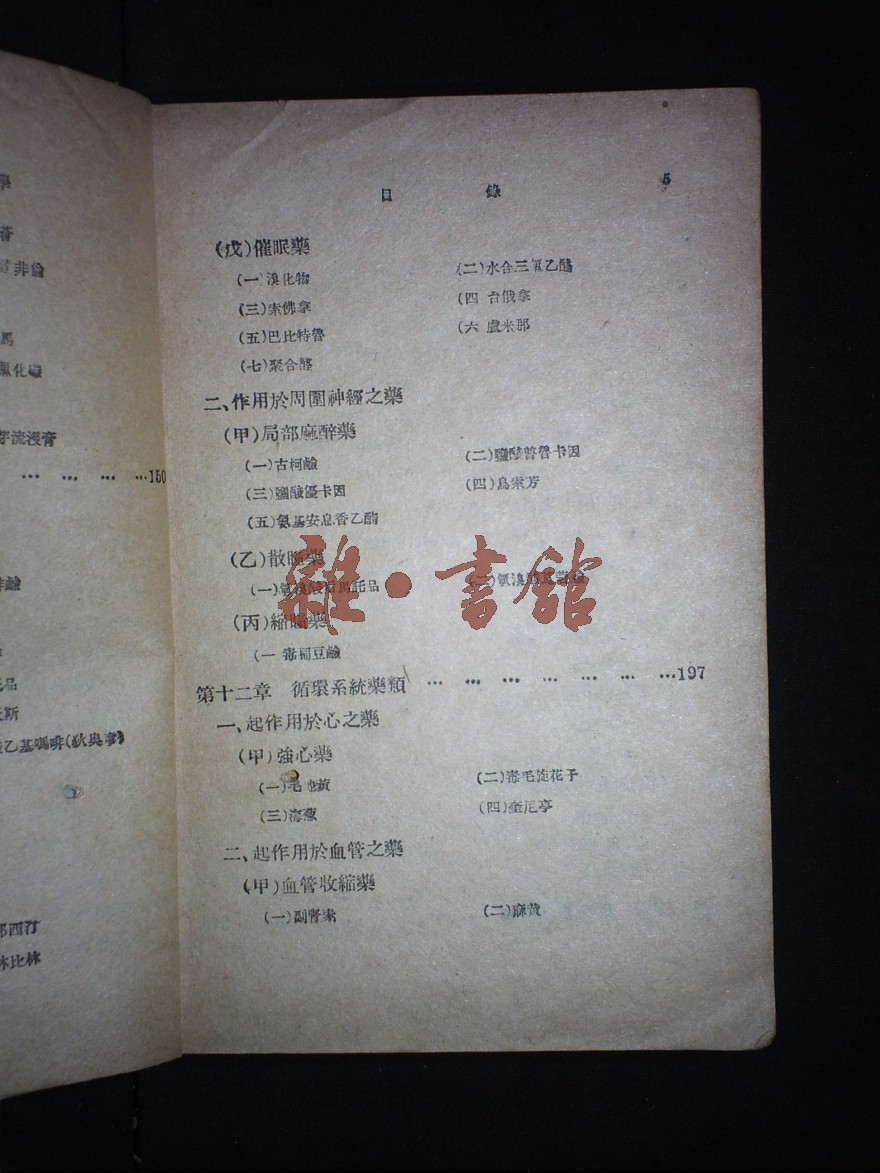 學
非倫
馬
氯化
芽流浸膏
… … … …150
託品
斯
乙基嗎啡(狄奧寧)
那西汀
林比林
目 錄 5
(戊)催眠藥
(一)溴化物 (二)水合三氯乙醛
(三)索佛拿 (四 台俄拿
(五)巴比特魯 (六 盧米那
(七)聚合醛
二、作用於周圍神經之藥
(甲)局部麻醉藥
(一)古柯鹼 (二)鹽酸普魯卡因
(三)鹽酸優卡因 (四)烏索芳
(五)氨基安息香乙酯
(乙)散瞳藥
(一)氫溴酸 馬託品 (二)氫溴
(丙)縮瞳藥
(一 毒扁豆鹼
第十二章 循環系統藥類 … … … … … … …197
一、起作用於心之藥
(甲)強心藥
(一)毛地黃 (二)毒毛旋花子
(三)海葱 (四)奎尼亭
二、起作用於血管之藥
(甲)血管收縮藥
(一)副腎素 (二)麻黃
雜·書館